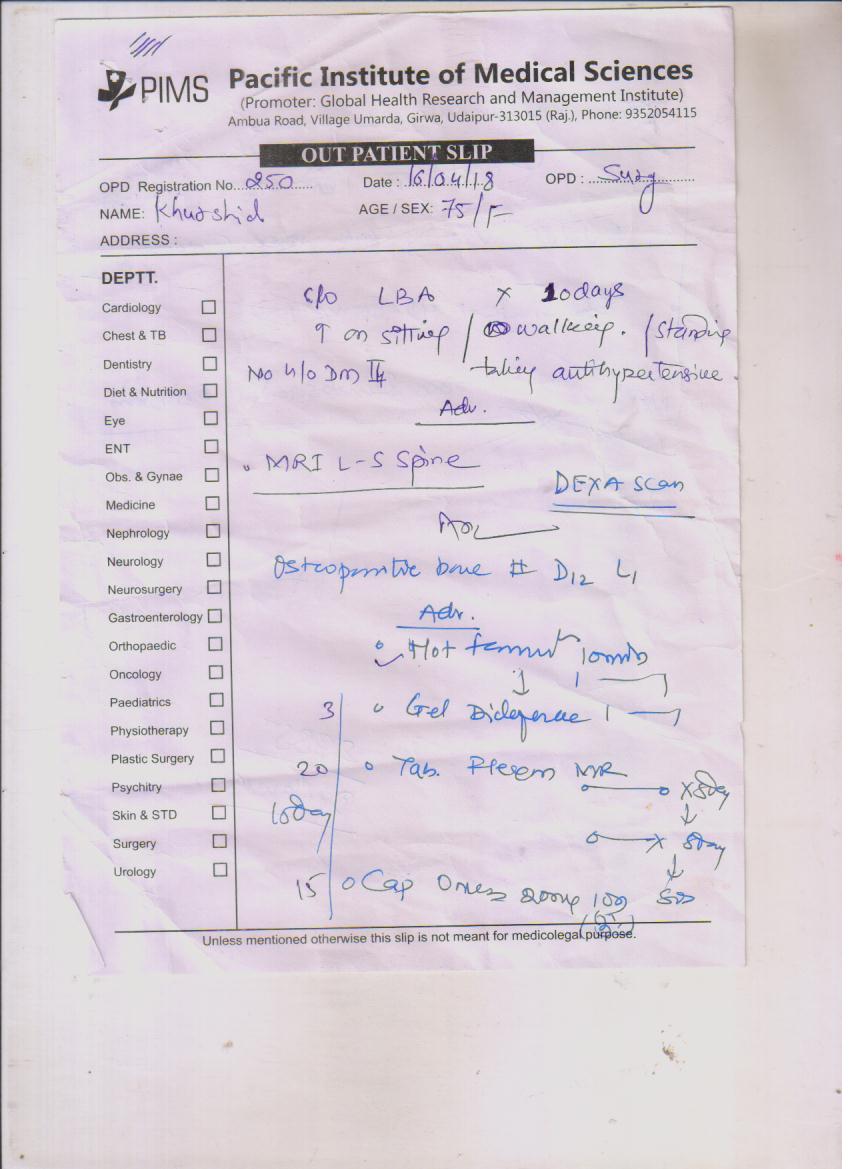 PIMS
Pacific Institute of Medical Sciences
(Promoter: Global Health Research and Management Institute)
Ambua Road, Village Umarda, Girwa, Udaipur-313015 (Raj.), Phone: 9352054115
OUT PATIENT SLIP
OPD Registration No. 250 Date : 16/04/18 OPD : Surg
NAME: Khurshid AGE / SEX: 75/F
ADDRESS :
DEPTT.
Cardiology
Chest & TB
Dentistry
Diet & Nutrition
Eye
ENT
Obs. & Gynae
Medicine
Nephrology
Neurology
Neurosurgery
Gastroenterology
Orthopaedic
Oncology
Paediatrics
Physiotherapy
Plastic Surgery
Psychitry
Skin & STD
Surgery
Urology
c/o LBA x 10days
↑ on sitting / walking. / standing
No h/o DM II taking antihypertensive.
Adv.
MRI L-S Spine
DEXA scan
bone # D12 L1
Adv.
Hot
3 Gel
20 Tab. MR x 5day
10day x 5day
15 Cap 100 SOS
Unless mentioned otherwise this slip is not meant for medicolegal purpose.